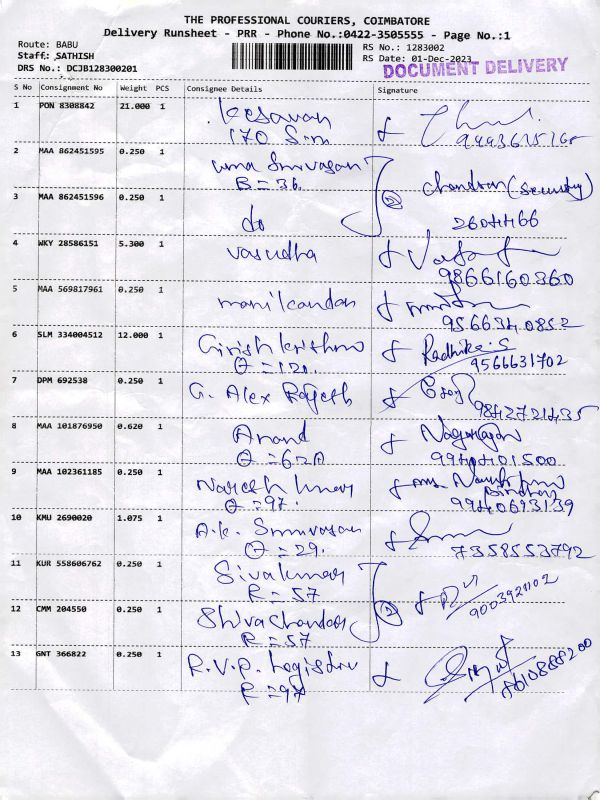 THE PROFESSIONAL COURIERS, COIMBATORE
Delivery Runsheet - PRR - Phone No.:0422-3505555 - Page No.:1
Route: BABU
RS No.: 1283002
Staff: SATHISH
RS Date: 01-Dec-2023
DRS No.: DCJB128300201
DOCUMENT DELIVERY
S No Consignment No Weight PCS Consignee Details Signature
1 PON 8308842 21.000 1 Kesavan
170 S.m
2 MAA 862451595 0.250 1 uma Srinivasan
B = 36.
chandran (Security)
3 MAA 862451596 0.250 1 do
2604466
4 WKY 28586151 5.300 1 vasudha
9866160360
5 MAA 569817961 0.250 1 manikandan
9566340852
6 SLM 334004512 12.000 1 Girish krishna Radhika.S
9566631702
7 DPM 692538 0.250 1 G. Alex Rajesh
9842721435
8 MAA 101876950 0.620 1 Anand Nagarajan
9940401500
9 MAA 102361185 0.250 1 Naresh kumar
= 97.
9940693139
10 KMU 2690020 1.075 1 A.k. Srinivasan
= 29.
7358553792
11 KUR 558606762 0.250 1 Sivakumar
R = 57
12 CMM 204550 0.250 1 Shivachandar
R = 57
13 GNT 366822 0.250 1 R.V.P. Logistics
R = 97